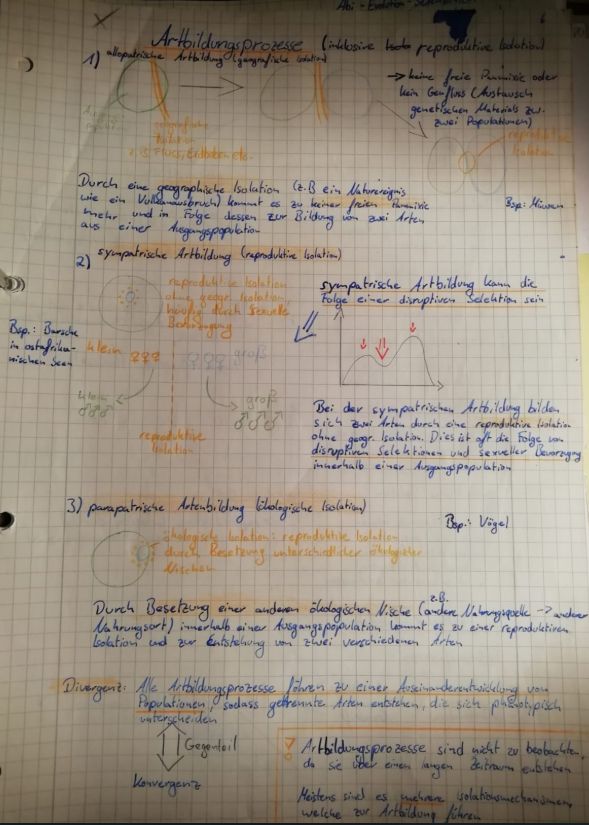 Abi - Evolution -
6
Artbildungsprozesse (inklusive reproduktive Isolation)
1) allopatrische Artbildung (geografische Isolation)
→ keine freie Panmixie oder
kein Genfluss (Austausch
genetischen Materials zw.
zwei Populationen)
reproduktive
Isolation
geografische
Isolation
z.B. Fluss, Erdbeben etc.
Durch eine geographische Isolation (z.B ein Naturereignis
wie ein Vulkanausbruch) kommt es zu keiner freien Panmixie
mehr und in Folge dessen zur Bildung von zwei Arten
aus einer Ausgangspopulation
Bsp: Möwen
2) sympatrische Artbildung (reproduktive Isolation)
reproduktive Isolation
ohne geogr. Isolation,
häufig durch sexuelle
Bevorzugung
sympatrische Artbildung kann die
Folge einer disruptiven Selektion sein
Bsp.: Barsche
in ostafrika-
nischen Seen
klein ♀♀♀
♀♀♀ groß
klein
♂♂♂
groß
♂♂♂
reproduktive
Isolation
Bei der sympatrischen Artbildung bilden
sich zwei Arten durch eine reproduktive Isolation
ohne geogr. Isolation. Dies ist oft die Folge von
disruptiven Selektionen und sexueller Bevorzugung
innerhalb einer Ausgangspopulation
3) parapatrische Artenbildung (ökologische Isolation)
Bsp.: Vögel
ökologische Isolation: reproduktive Isolation
durch Besetzung unterschiedlicher ökologischer
Nischen
z.B.
Durch Besetzung einer anderen ökologischen Nische (andere Nahrungsquelle -> anderer
Nahrungsort) innerhalb einer Ausgangspopulation kommt es zu einer reproduktiven
Isolation und zur Entstehung von zwei verschiedenen Arten
Divergenz: Alle Artbildungsprozesse führen zu einer Auseinanderentwicklung von
Populationen, sodass getrennte Arten entstehen, die sich phänotypisch
unterscheiden
Gegenteil
Konvergenz
! Artbildungsprozesse sind nicht zu beobachten,
da sie über einen langen Zeitraum entstehen
Meistens sind es mehrere Isolationsmechanismen,
welche zur Artbildung führen